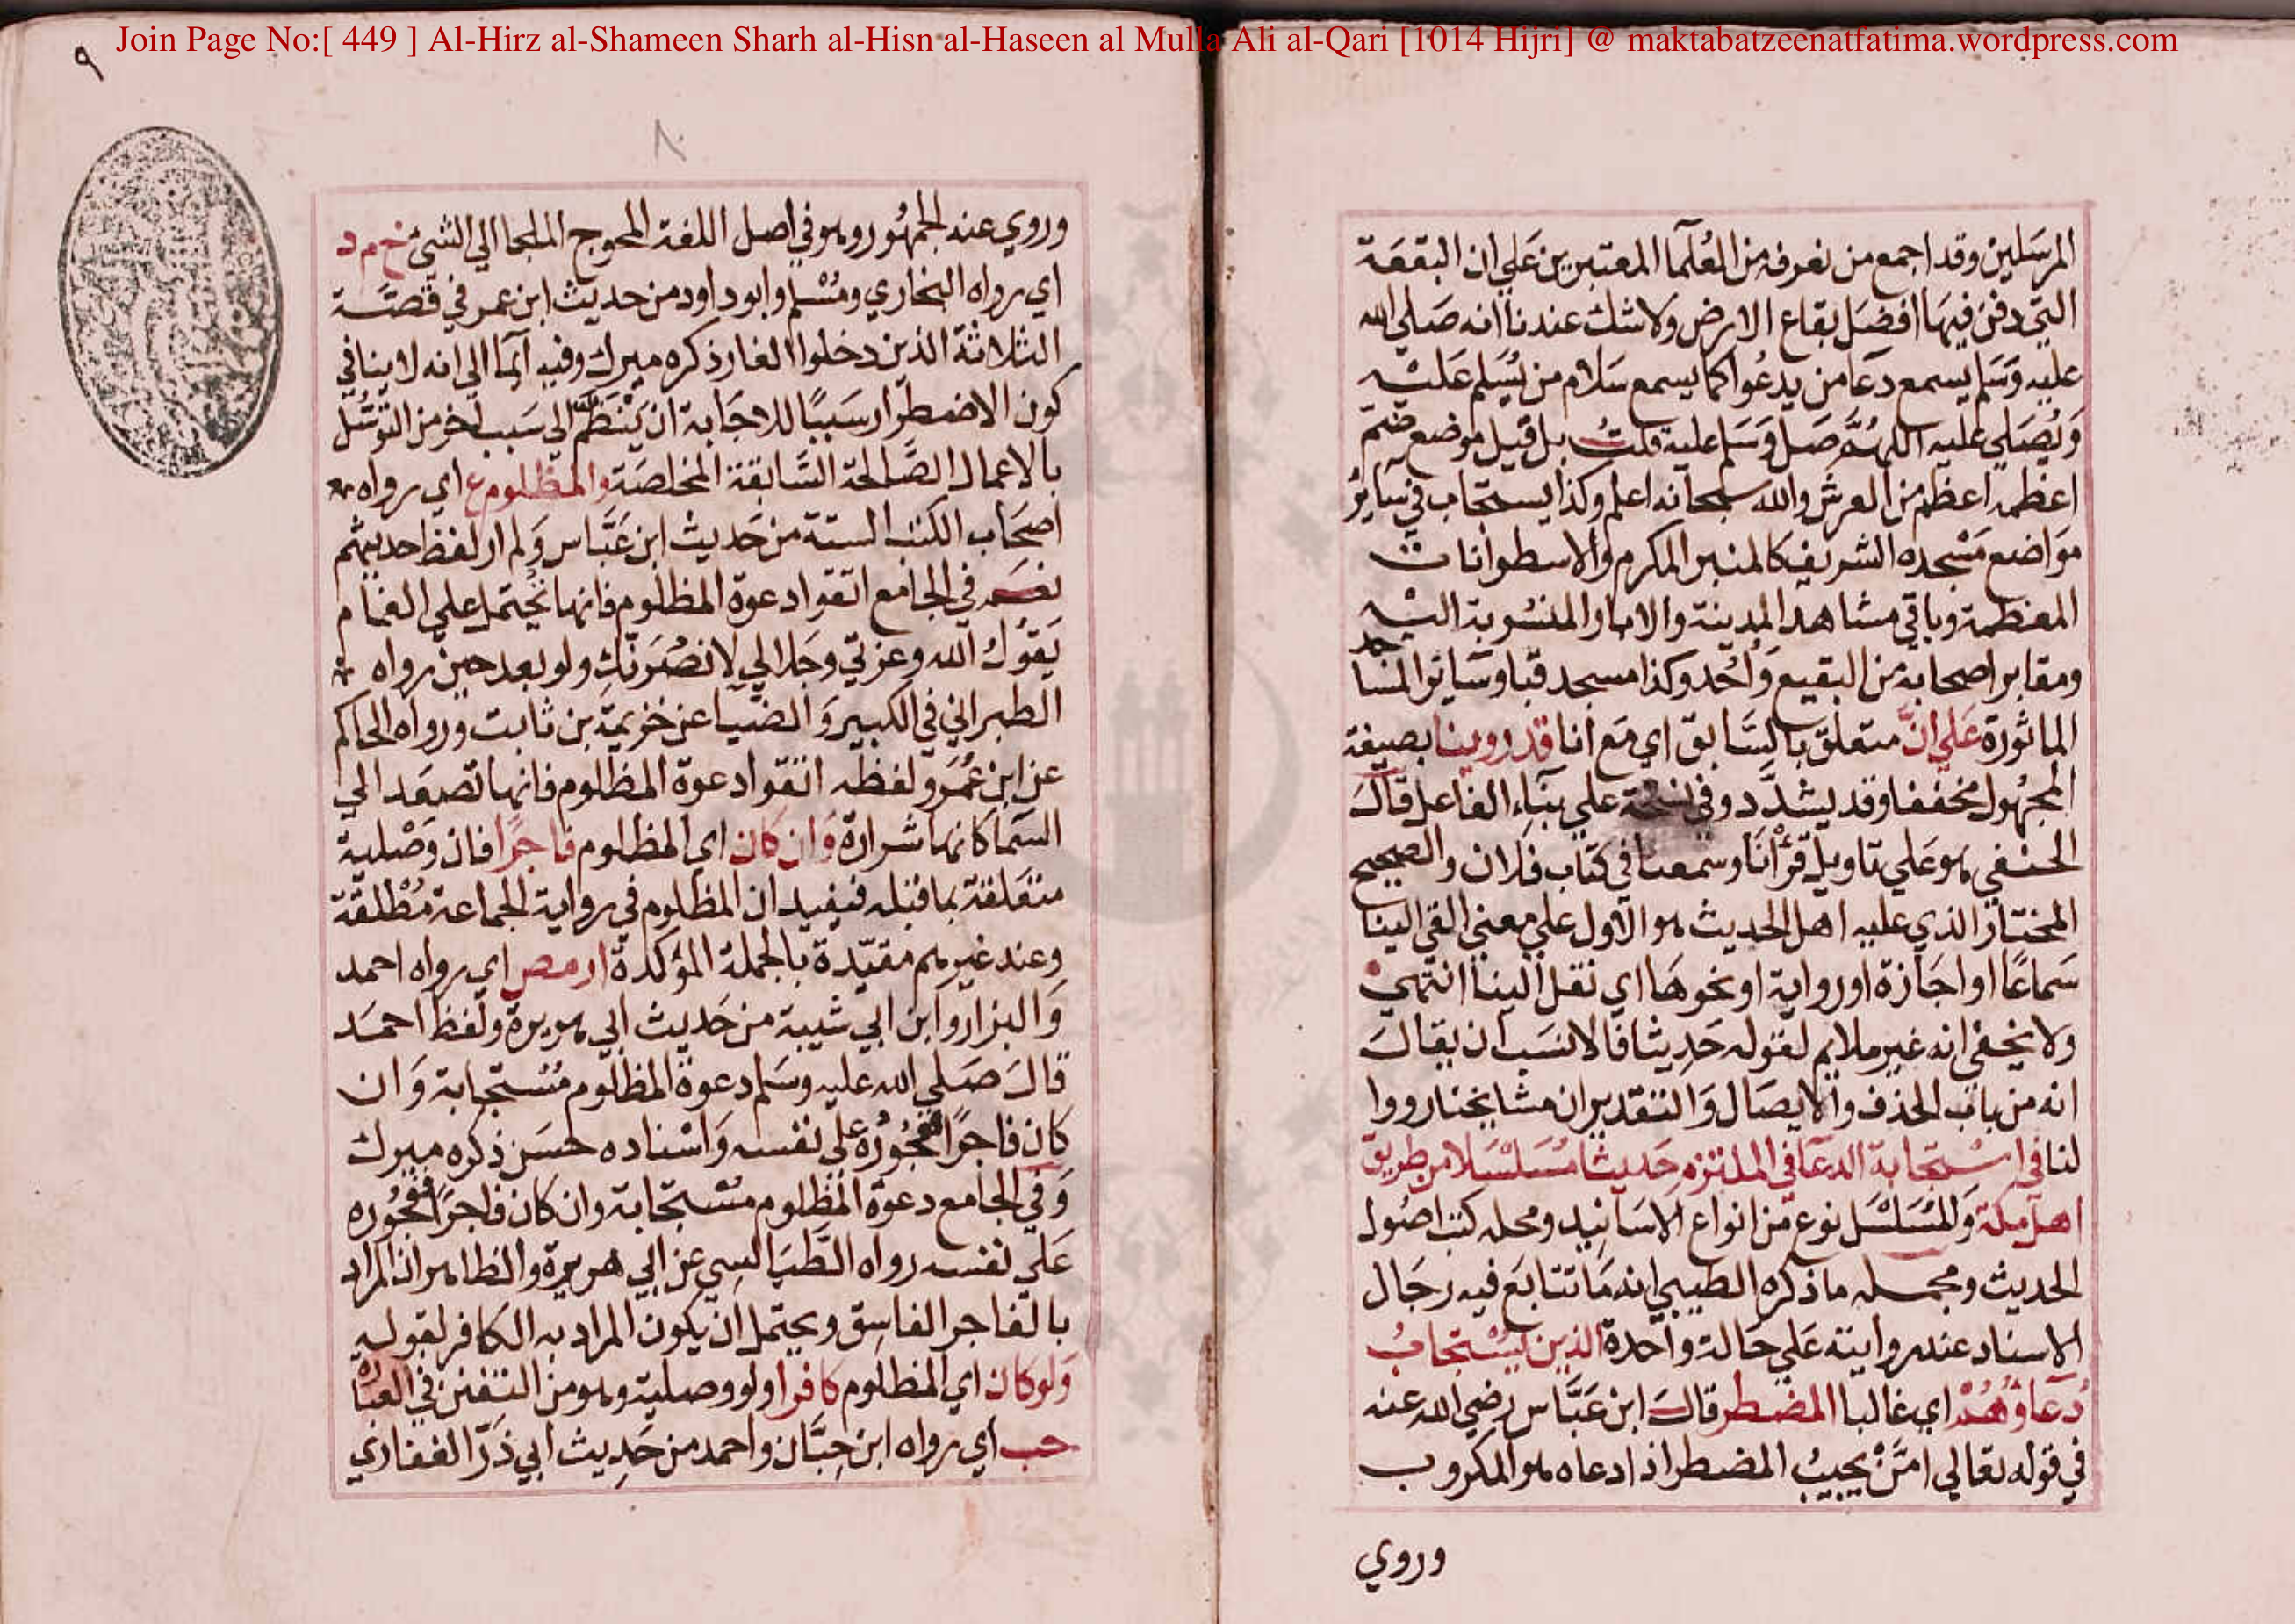 Join Page No:[ 449 ] Al-Hirz al-Shameen Sharh al-Hisn al-Haseen al Mulla Ali al-Qari [1014 Hijri] @ maktabatzeenatfatima.wordpress.com
المرسَلين وقد اجمع من نعرفه من العُلمآ المعتبرين عَلي ان البقعَة
التي دفن فيهَا افضَل بقاع الارض ولا شك عندنا انه صَلي الله
عليه وَسَلم يسمع دعَا من يدعُوا كما يسمع سَلام من يُسَلم عَليْه
وَيُصَلي عليه اللهُمَّ صَل وَسَلم عليه قلتُ بل قيل موضع ضمّ
اعظمه اعظم من العرش والله سبحانه اعلم وكذا يستجاب في سَايرُ
موَاضع مَسْجده الشريف كالمنبر المكرم والاسطوانات
المعظمة وباقي مشاهد المدينة والابار المنسُوبة اليْه
ومقابر اصحابه من البقيع وَأُحُد وكذا مسجد قبا وسَائر المسَاجد
الماثورة عَلي انَّ متعلق بالسَّابق اي مَع انا قد روينا بصيغة
المجهُول مخففا وقد يشدَّد وفي نسخة علي بنَاءِ الفاعل قالَ
الحنفي هو عَلي تاويل قرْأنَا وسَمعنا في كتَاب فلان والصحيح
المختار الذي عليه اهل الحديث هو الاول علي معني القي الينا
سَماعًا او اجَازة او رواية او نحوهَا اي نقل الينا انتهي
ولا يخفي انه غير ملايم لقوله حَديثا فالانسَب ان يقالَ
انه من باب الحذف والايصَال وَالتقدير ان مشايخنا رووا
لنا في استجابة الدعَا في الملتزم حَديثا مسَلسَلا من طريق
اهل مكة وَالمُسَلسَل نوع من انواع الاسَانيد ومحله كتب اصُول
الحديث ومجمله ما ذكره الطيبي انه مَا تتابَع فيه رجَال
الاسناد عند روايته عَلي حَالة وَاحدة الذين يُسْتجابُ
دُعَاؤهُمْ اي غالبا المضطر قالَ ابن عَبَّاس رضي الله عنه
في قوله تعَالي امَّنْ يجيبُ المضطر اذا دعاه هو المكروب
وروي
٩
٨
وروي عنه الجمهُور وهو في اصل اللغة المحوج الملجا الي الشيْ خ م د
اي رواه البخاري ومُسْلم وابو داود من حديث ابن عمر في قصّة
الثلاثة الذين دخلوا الغار ذكره ميرك وفيه ايما الي انه لا ينافي
كون الاضطرار سَببًا للاجَابة ان يَنْضَمّ الي سَبب اخر من التوسُّل
بالاعمال الصَّالحة السَّابقة المخلصَة والمظلوم ع اي رواه
اصحَاب الكتب الستة من حَديث ابن عَبَّاس وَلم ار لفظ احد بينهم
نعَم في الجامع اتقوا دعوة المظلوم فانها تُحتمل علي الغمَام
يَقوُل الله وعزتي وجَلالي لانصُرَنّكِ ولو بعد حين رواه
الطبراني في الكبير وَالضيَا عن خزيمَة بن ثابت ورواه الحاكم
عن ابن عُمَر ولفظه اتقوا دعوة المظلوم فانها تصعَد الي
السَّما كانها شرارة وَان كان اي المظلوم فاجرًا فان وَصْلية
متعَلقة بما قبله فيفيد ان المظلوم في رواية الجماعة مُطْلقة
وعند غيرهم مقيّدة بالجملة المؤكدة ار مص اي رواه احمد
وَالبزار وابن ابي شيبة من حَديث ابي هريرة ولفظ احمَد
قالَ صَلي الله عليه وسَلم دعوة المظلوم مُسْتجابة وَان
كان فاجرًا ففجُورُه علي نفسه وَاسْناده حسَن ذكره ميرك
وَفي الجامع دعوة المظلوم مسْتجَابة وان كان فاجرًا ففجُوره
عَلي نفسه رواه الطَّيَالسِي عن ابي هريرة والظاهر ان المراد
بالفاجر الفاسِق ويحتمل ان يكون المراد به الكافر لقوله
وَلو كان اي المظلوم كافرا ولو وصلية وهو من التفنن في العبَارة
حب اي رواه ابن حِبَّان واحمد من حَديث ابي ذَرّ الغفاري